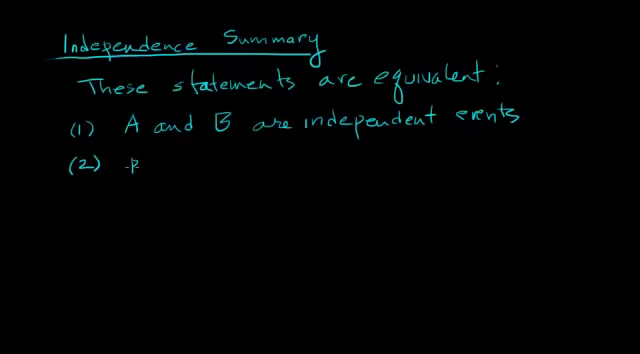 Independence Summary
These statements are equivalent:
(1) A and B are independent events
(2)